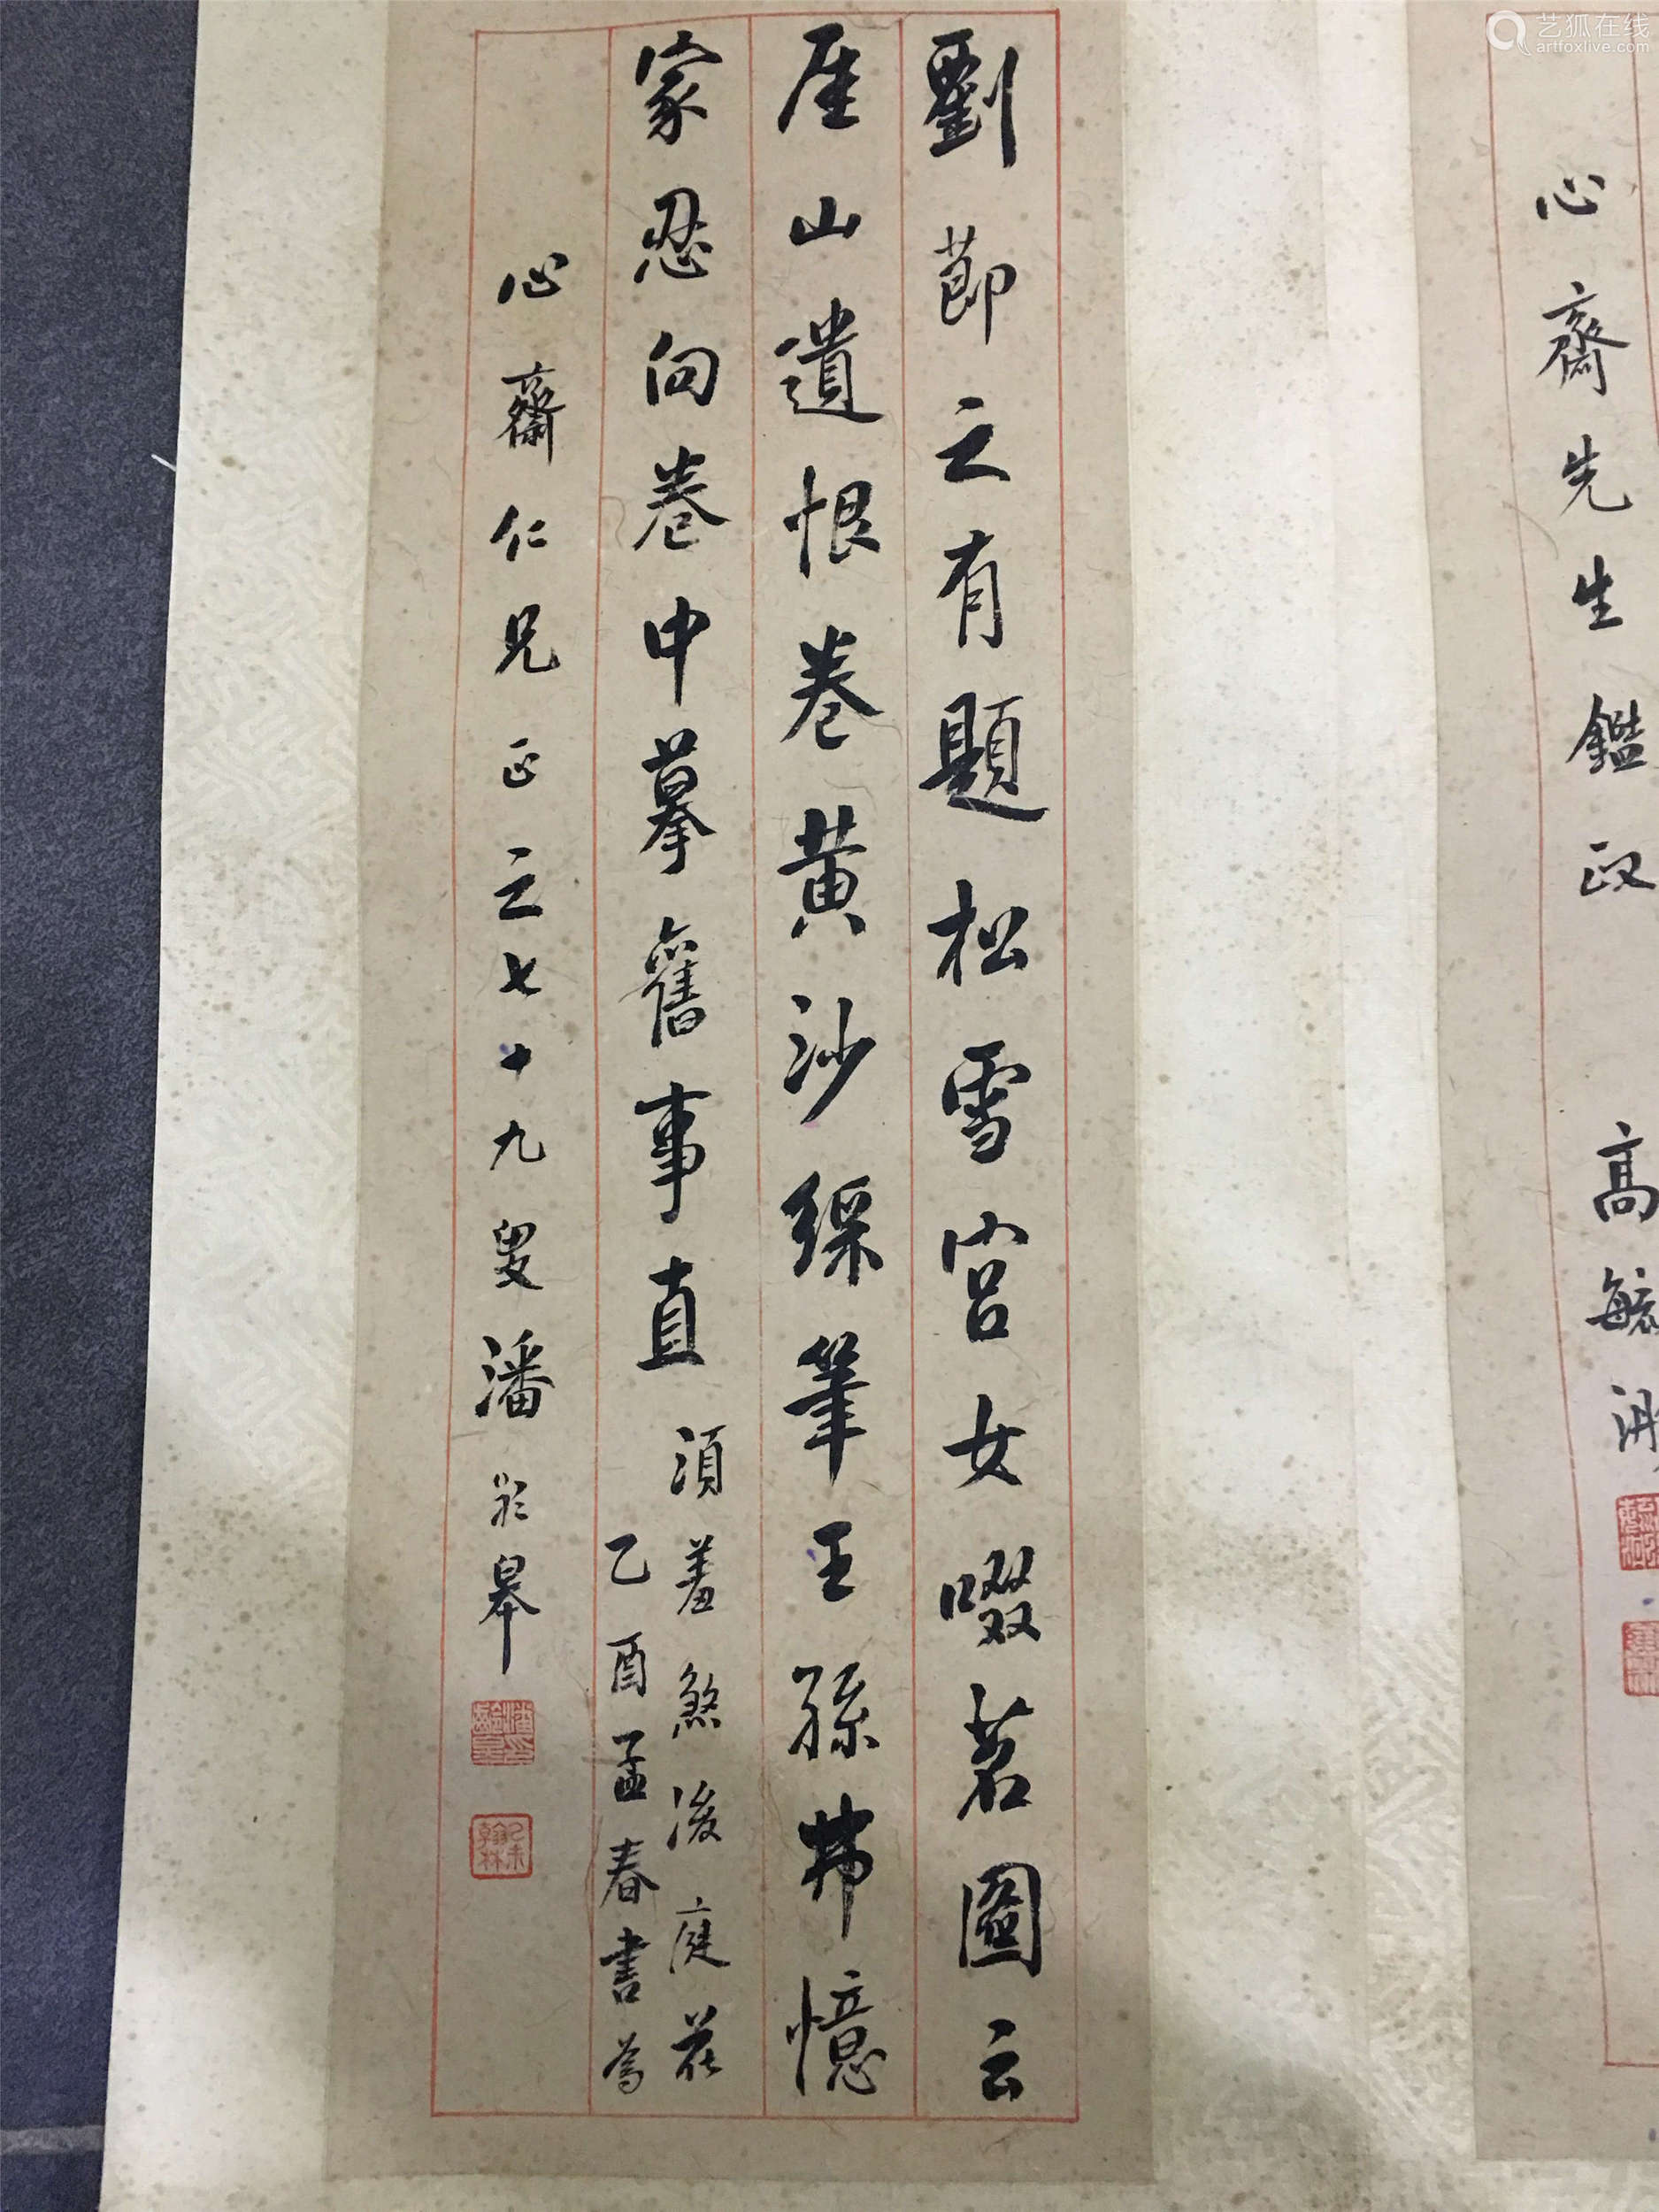 劉節之有題松雪宮女啜茗圖云
厓山遺恨卷黃沙綵筆王孫弗憶
家忍向卷中摹舊事直
須羞煞後庭花
乙酉孟春書為
心齋仁兄正之七十九叟潘齡皋
潘齡皋印
乙未翰林
心齋先生鑑政
高毓浵
艺狐在线
artfoxlive.com